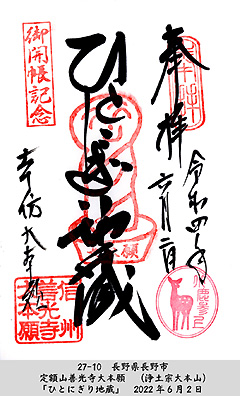 奉拝
令和四年
六月二日
ひとにぎり地蔵
御開帳記念
善光寺大本願
信州
善光寺
大本願
27-10　長野県長野市
定額山善光寺大本願　（浄土宗大本山）
「ひとにぎり地蔵」　2022年6月2日